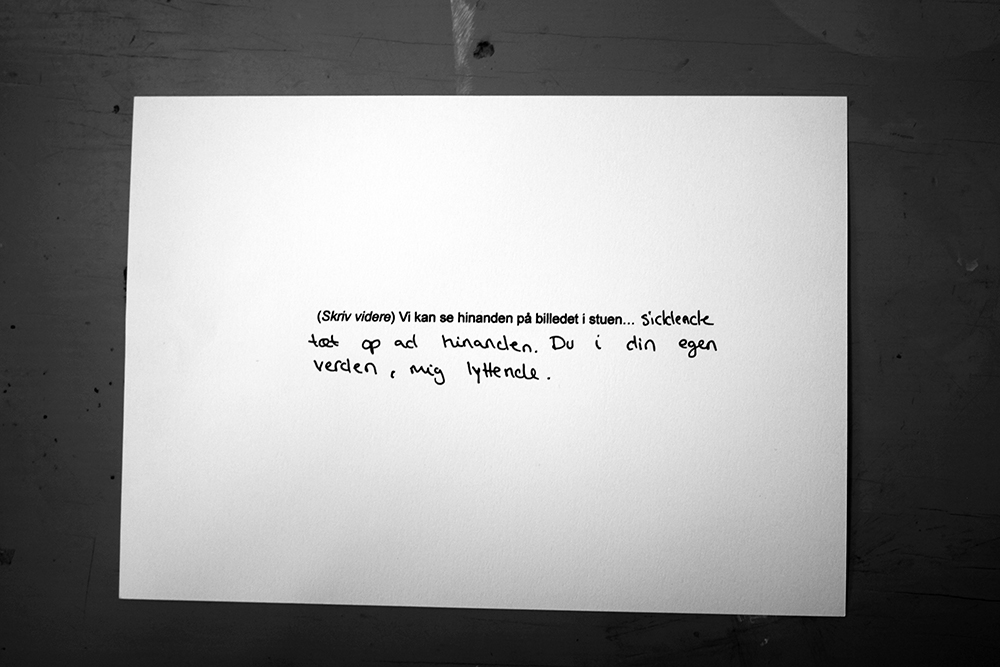 (Skriv videre) Vi kan se hinanden på billedet i stuen... siddende
tæt op ad hinanden. Du i din egen
verden, mig lyttende.